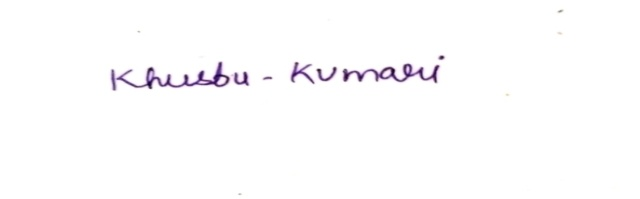 Khusbu - Kumari